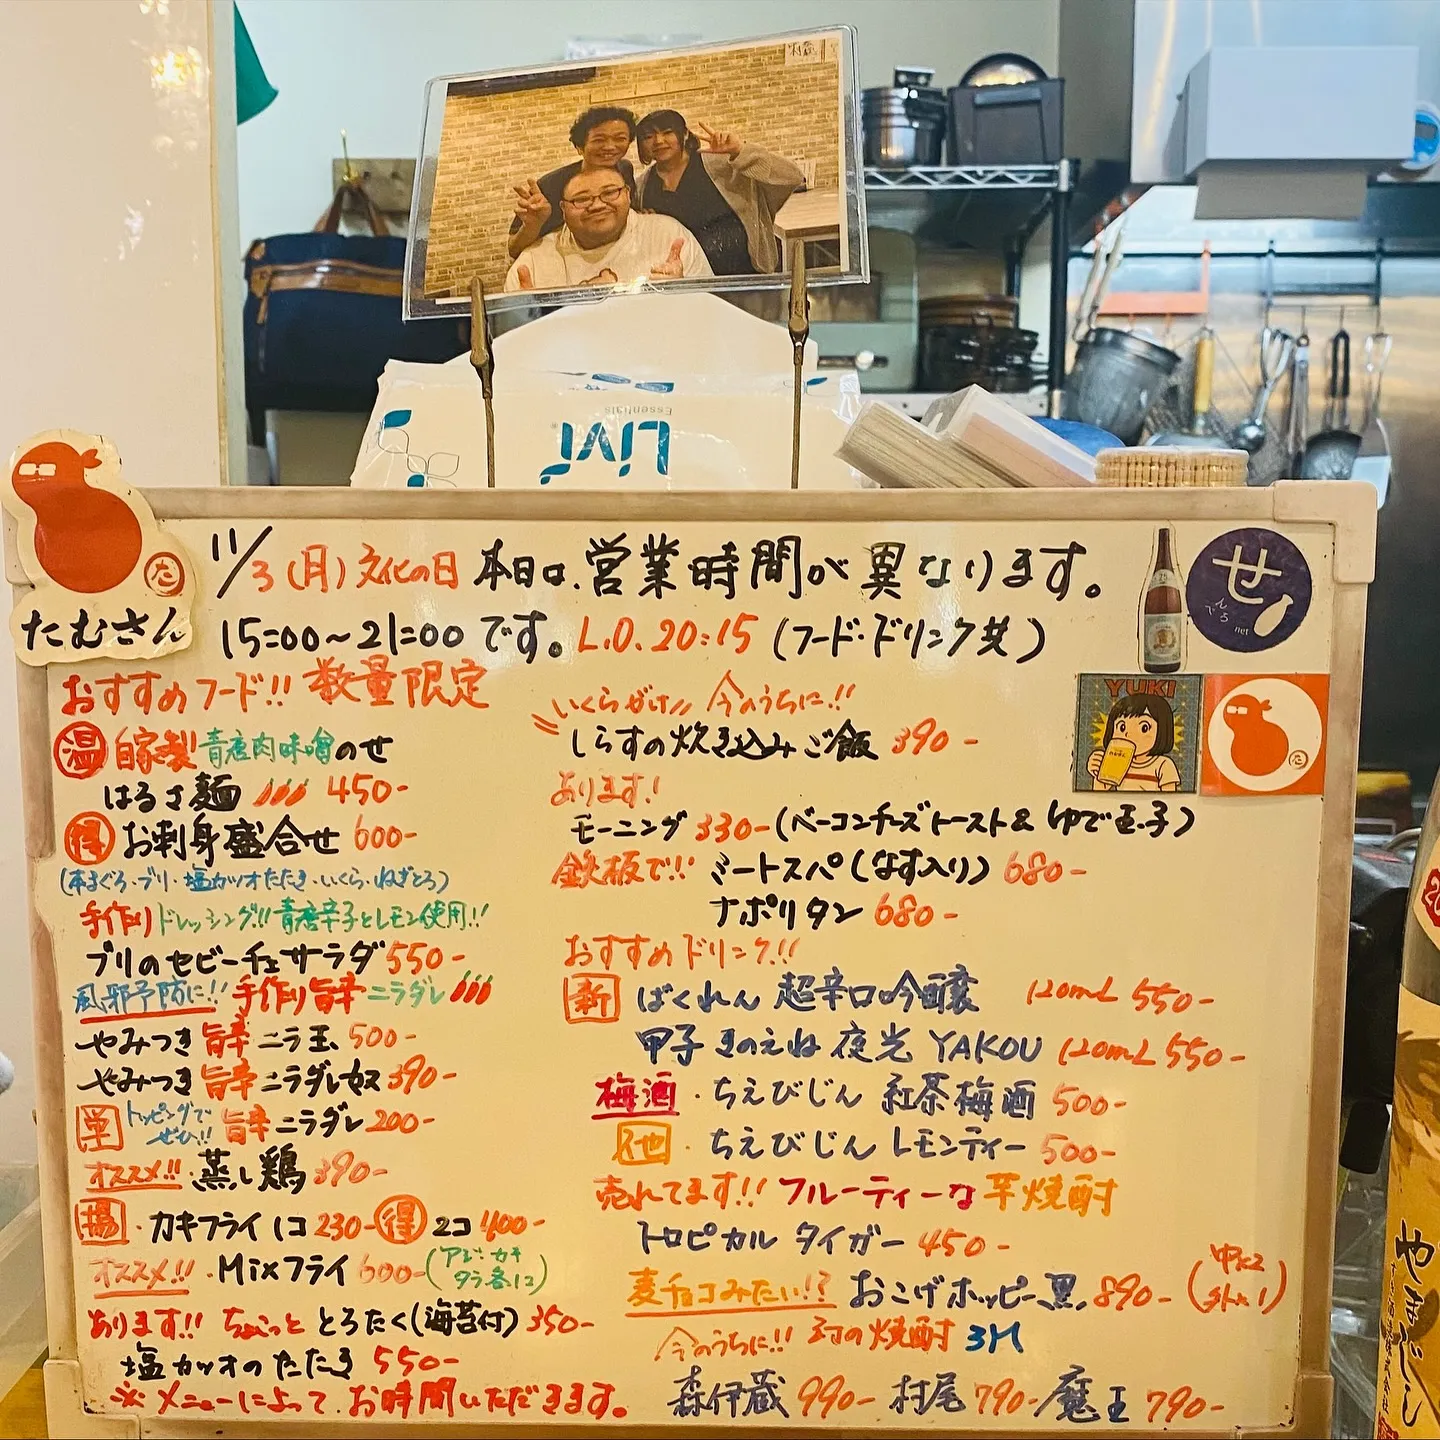 村尾
Livi
Essentials
たむさん
た
11/3(月)文化の日 本日は、営業時間が異なります。
15:00〜21:00です。L.O.20:15(フード・ドリンク共)
せ
でんろう
net
YUKI
おすすめフード!! 数量限定
温 自家製 青唐肉味噌のせ
はるさ麺 450-
得 お刺身盛合せ 600-
(本まぐろ・ブリ・塩カツオたたき・いくら・ねぎとろ)
手作りドレッシング!! 青唐辛子とレモン使用!!
ブリのセビーチェサラダ 550-
風邪予防に!! 手作り旨辛ニラダレ
やみつき旨辛ニラ玉 500-
やみつき旨辛ニラダレ奴 390-
単 トッピングで ぜひ!! 旨辛ニラダレ 200-
オススメ!!・蒸し鶏 390-
揚・カキフライ 1コ 230- 得 2コ 400-
オススメ!!・Mixフライ 600-(アジ・カキ
タラ各1コ)
あります!! ちょこっととろたく(海苔付) 350-
塩カツオのたたき 550-
※メニューによって、お時間いただきます。
いくらがけ!! 今のうちに!!
しらすの炊き込みご飯 390-
あります!
モーニング 330-(ベーコンチーズトースト&ゆで玉子)
鉄板で!! ミートスパ(なす入り) 680-
ナポリタン 680-
おすすめドリンク!!
新 ばくれん 超辛口吟醸 120mL 550-
甲子 きのえね 夜光 YAKOU 120mL 550-
梅酒・ちえびじん 紅茶梅酒 500-
他・ちえびじん レモンティー 500-
売れてます!! フルーティーな芋焼酎
トロピカル タイガー 450-
麦チョコみたい!? おこげホッピー黒 890-(中×2
外×1)
今のうちに!! 幻の焼酎 3M
森伊蔵 990- 村尾 790- 魔王 790-